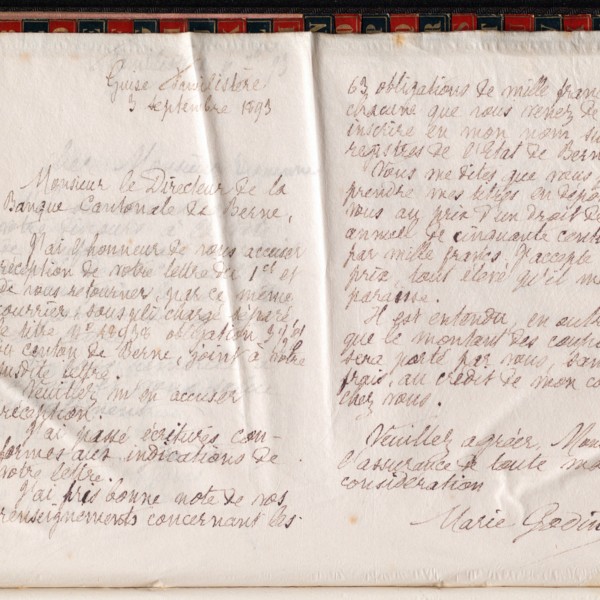 Guise Familistère
3 septembre 1893
Monsieur le Directeur de la
Banque Cantonale de Berne,
J'ai l'honneur de vous accuser
réception de votre lettre du 1er et
de vous retourner, par ce même
courrier, sous pli chargé séparé
le titre N° obligation
du canton de Berne, joint à votre
susdite lettre.
Veuillez m'en accuser
réception.
J'ai passé écritures con-
formes aux indications de
votre lettre.
J'ai pris bonne note de vos
renseignements concernant les
63 obligations de mille franc
chacune que vous venez de
inscrire en mon nom sur
registres de l'Etat de Berne
Vous me dites que vous
prendre mes titres en dépôt
vous au prix d'un droit de
annuel de cinquante cent
par mille francs. J'accepte
prix tout élevé qu'il me
paraisse.
Il est entendu, en outre
que le montant des coupo
sera porté par vous, san
frais, au crédit de mon co
chez vous.
Veuillez agréer, Mons
l'assurance de toute ma
considération
Marie Godin